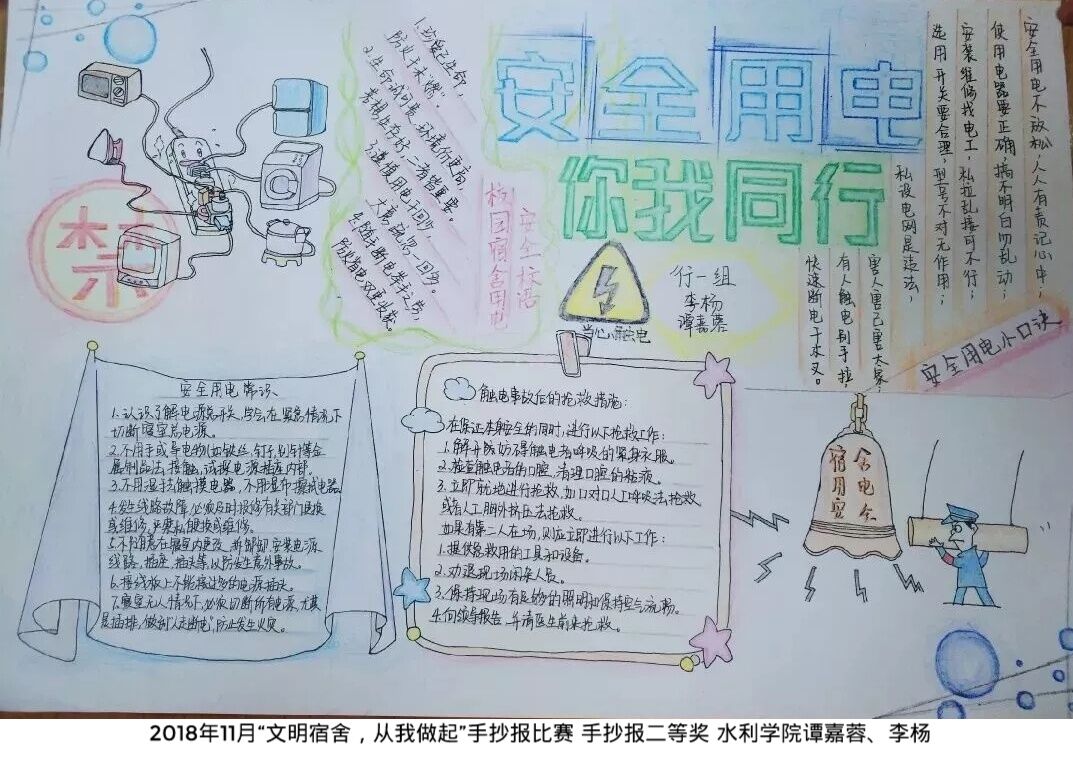 安全用电
你我同行
禁
1.珍爱己生命,
防止于未"燃"。
2.生命诚可贵,环境价更高,
若想此存好,二者皆重要。
3.请使用电子回炒,
大家说"勿"回多。
4.随手断电举手之劳,
防火省电双重收获。
校园宿舍用电
安全标语
当心触电
行一组
李杨
谭嘉蓉
安全用电不放松,人人有责记心中;
使用电器要正确,搞不明白勿乱动;
安装维修找电工,私拉乱接可不行;
选用开关要合理,型号不对无作用;
私设电网是违法,
害人害己害大家
有人触电别手拉,
快速断电干木叉。
安全用电小口诀
安全用电常识
1.认识了解电源总开关,学会在紧急情况下
切断寝室总电源。
2.不用手或导电的(如铁丝,钉子,别针等金
属制品)去接触,试探电源插座内部。
3.不用湿手触摸电器,不用湿布擦拭电器
4.发生线路故障,必须及时报修有关部门更换
或维修,严禁私自更换或维修。
5.不随意在寝室内更改,拆卸卸安装电源
线路,插座,插头等,以防发生意外事故。
6.接线板上不能接过多的电源插头。
7.寝室无人情况下,必须切断所有电源,尤其
是插排,做到"人走断电",防止发生火灾。
触电事故后的抢救措施:
在保证本身安全的同时,进行以下抢救工作:
1.解开妨碍触电者呼吸的紧身衣服。
2.检查触电者的口腔,清理口腔的粘液。
3.立即就地进行抢救,如口对口人工呼吸法抢救
或者人工胸外挤压法抢救。
如果有第二人在场,则应立即进行以下工作:
1.提供急救用的工具和设备。
2.劝退现场闲杂人员。
3.保持现场有足够的照明和保持空气流畅。
4.向领导报告,并请医生前来抢救。
宿舍
用电
安全
2018年11月“文明宿舍,从我做起”手抄报比赛 手抄报二等奖 水利学院谭嘉蓉、李杨